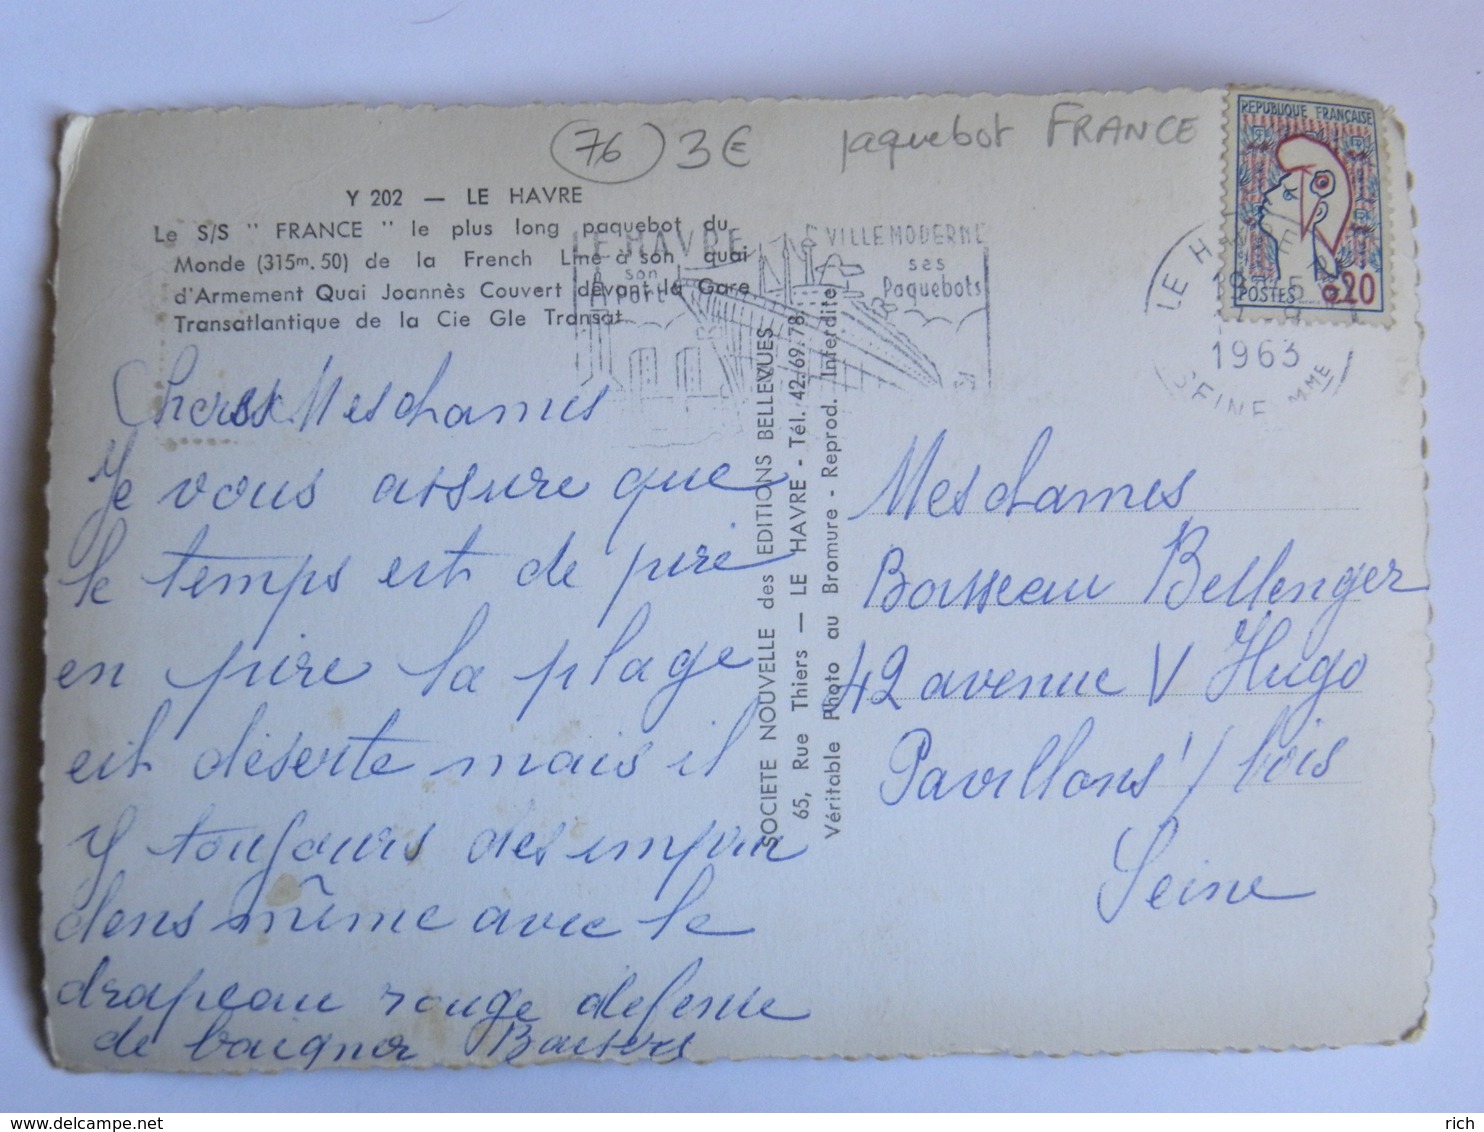 (76) 3€ paquebot FRANCE
REPUBLIQUE FRANÇAISE
POSTES 0,20
Y 202 — LE HAVRE
Le S/S " FRANCE " le plus long paquebot du
Monde (315m. 50) de la French Line à son quai
d'Armement Quai Joannès Couvert devant la Gare
Transatlantique de la Cie Gle Transat
LE HAVRE
son
Port
VILLE MODERNE
ses
Paquebots
LE HAVRE
1963
SEINE MME
Cheres Mesdames
Je vous assure que
le temps est de pire
en pire la plage
est déserte mais il
y toujours des impru
dens même avec le
drapeau rouge defense
de baigner Baisers
SOCIETE NOUVELLE des EDITIONS BELLEVUES
65, Rue Thiers — LE HAVRE - Tél. 42.69.78
Véritable Photo au Bromure - Reprod. Interdite
Mesdames
Boisseau Bellenger
42 avenue V Hugo
Pavillons s/ bois
Seine
rich